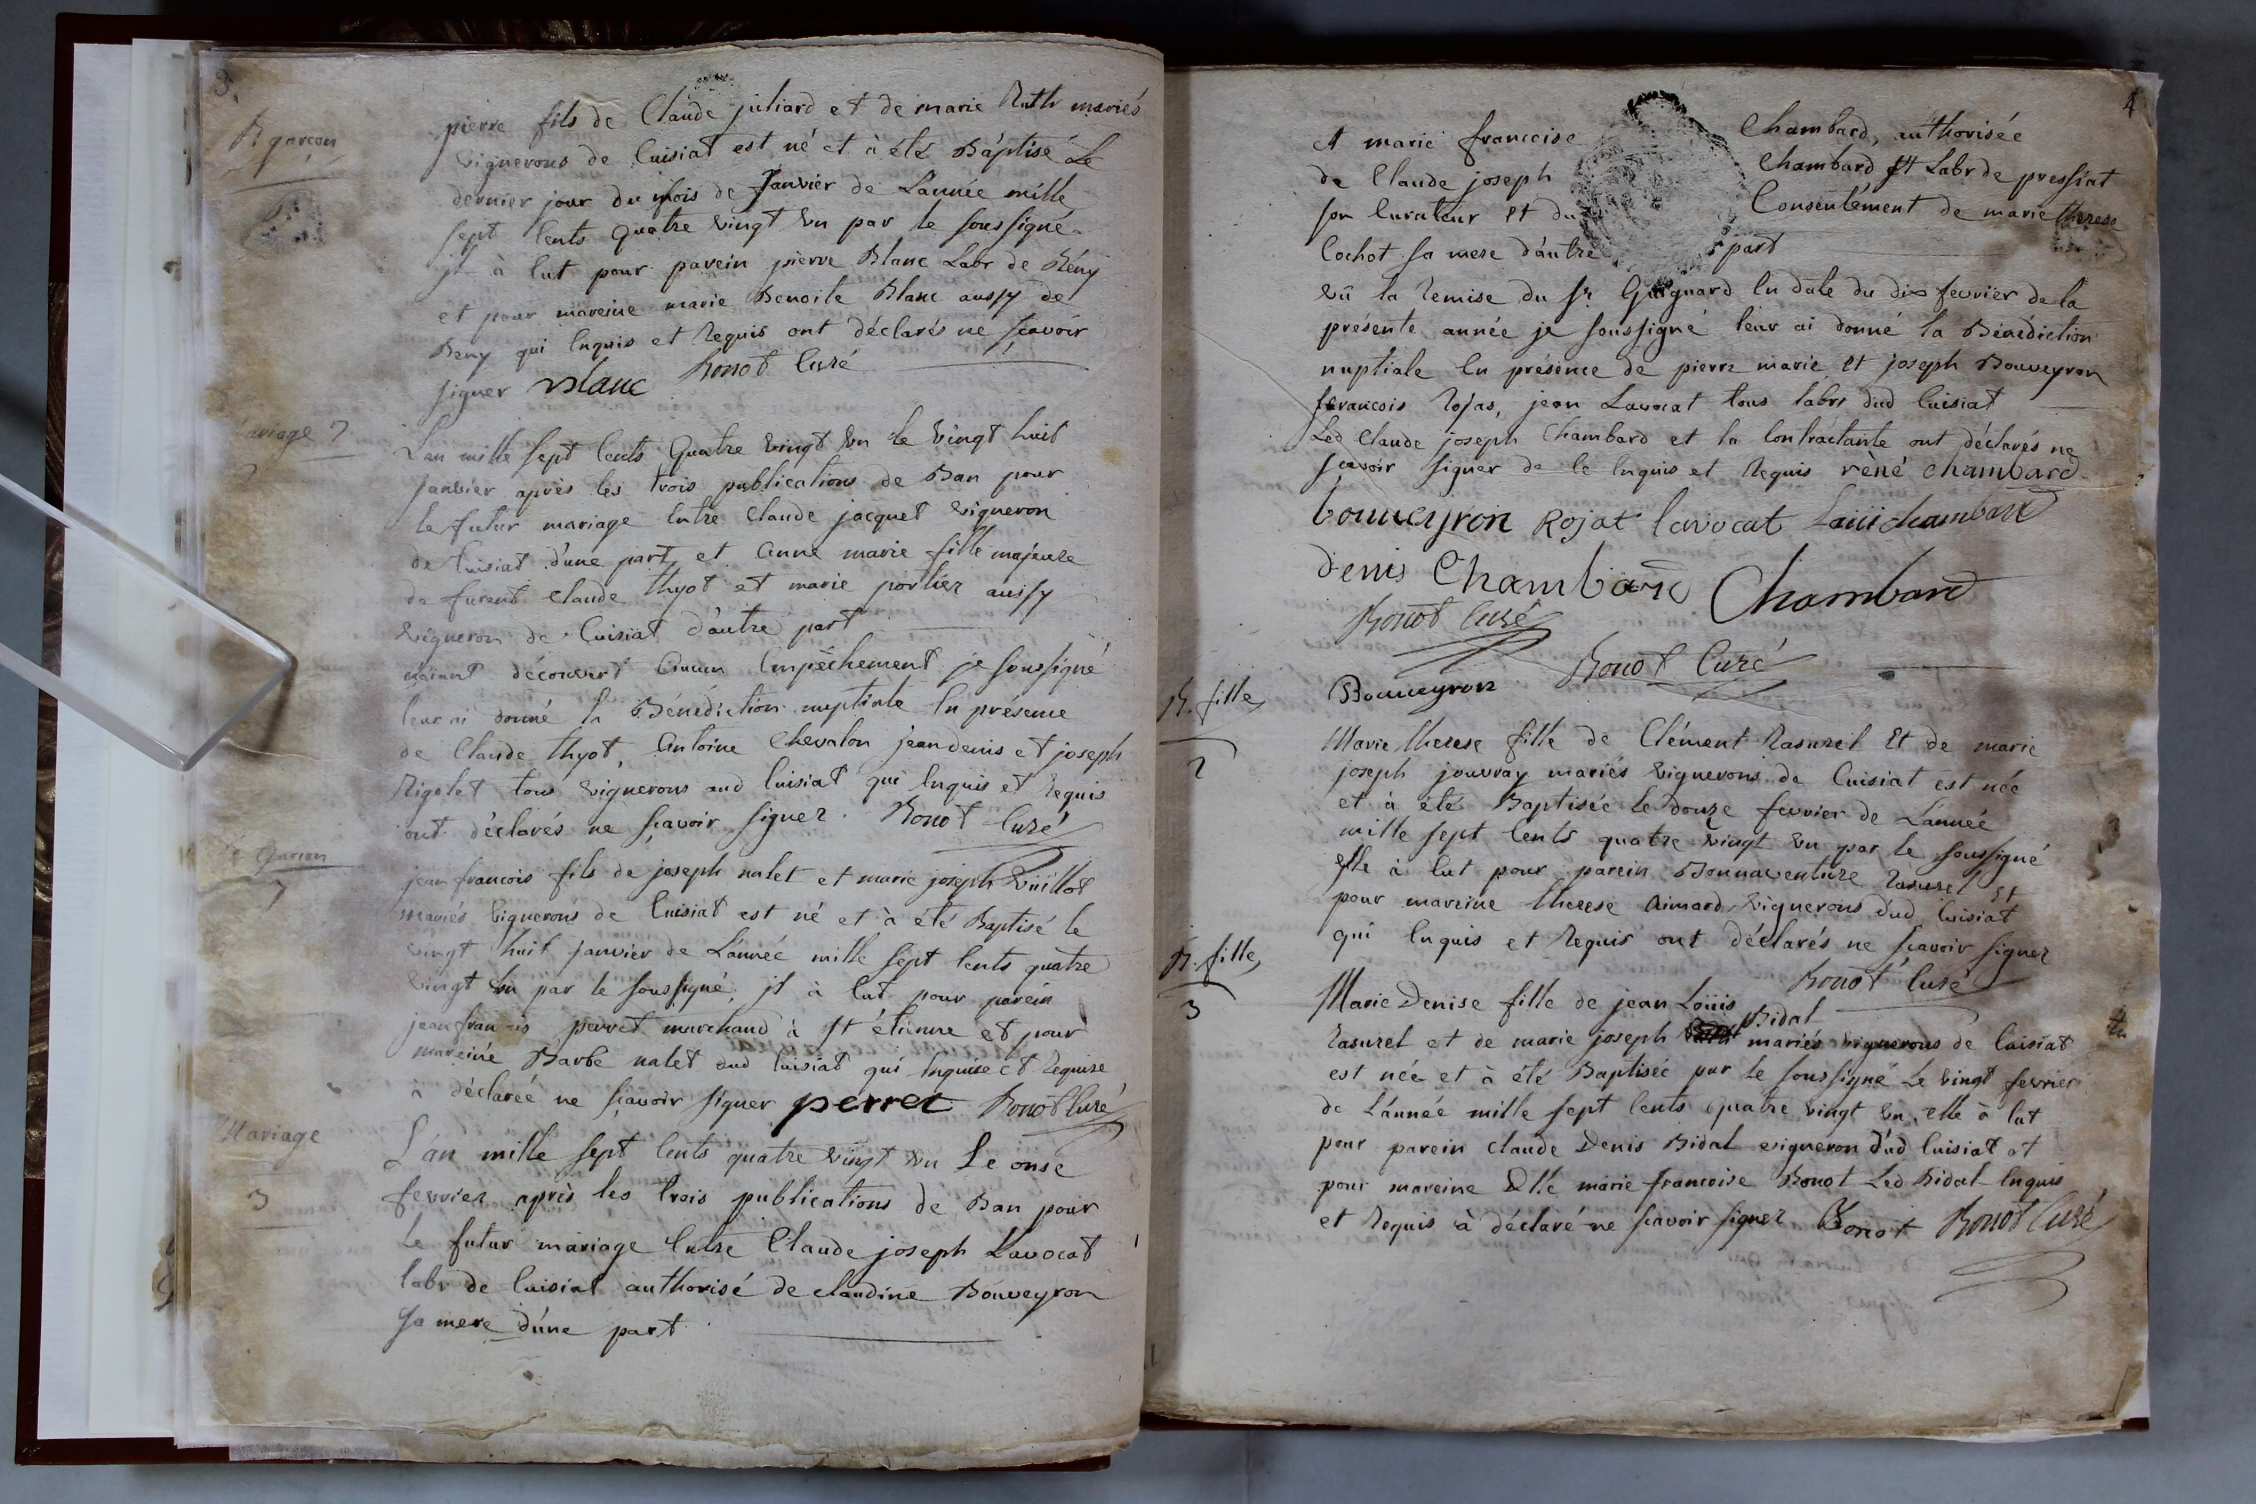 3.
B garcon
1
pierre fils de Claude juliard et de marie Ruth mariés
vignerons de Cuisiat est né et à été Baptisé Le
dernier jour du mois de Janvier de L'année mille
sept Cents Quatre vingt un par le soussigné
jl à Eut pour parein pierre Blanc Labr de Bény
et pour mareine marie Benoite Blanc aussy de
Beny qui Enquis et Requis ont déclarés ne sçavoir
signer Blanc Bonot Curé
Mariage 2
L'an mille sept Cents Quatre vingt un le vingt huit
janvier après les trois publications de Ban pour
le futur mariage Entre Claude jacquet vigneron
de Cuisiat d'une part et Anne marie fille majeure
de furent Claude thyot et marie portier aussy
vigneron de Cuisiat d'autre part
n'aiant découvert Aucun Empêchement je soussigné
leur ai donné la Bénédiction nuptiale En présence
de Claude thyot, Antoine Chevalon jean denis et joseph
Rigolet tous vignerons aud Cuisiat qui Enquis et Requis
ont déclarés ne sçavoir signer. Bonot Curé
B Garcon
2
jean francois fils de joseph nalet et marie joseph Vuillot
mariés vignerons de Cuisiat est né et à été Baptisé le
vingt huit janvier de L'année mille sept Cents quatre
vingt un par le soussigné, jl à Eut pour parein
jean francois perret marchand à St étienne et pour
mareine Barbe nalet aud Cuisiat qui Enquise et Requise
à déclarée ne sçavoir signer perret Bonot Curé
Mariage
3
L'an mille sept Cents quatre vingt un Le onse
fevrier après les trois publications de Ban pour
le futur mariage Entre Claude joseph Lavocat
labr de Cuisiat authorisé de claudine Bouveyron
sa mere d'une part
4
et marie francoise Chambard, authorisée
de Claude joseph Chambard Labr de pressiat
son Curateur et du Consentement de marie therese
Cochot sa mere d'autre part
vû la Remise du Sr Guignard En date du dix fevrier de la
présente année je soussigné leur ai donné la Bénédiction
nuptiale En présence de pierre marie et joseph Bouveyron
francois Rojas, jean Lavocat tous labrs dud Cuisiat
Led Claude joseph Chambard et la Contractante ont déclarés ne
sçavoir signer de Ce Enquis et Requis rèné chambard
bouveyron Rojat lavocat Louis chambard
denis Chambard Chambard
Bonot Curé
Bonot Curé
Bouveyron
B. fille
2
Marie therese fille de Clément Rasurel Et de marie
joseph jouvray mariés vignerons de Cuisiat est née
et à été Baptisée le douze fevrier de L'année
mille sept Cents quatre vingt un par le soussigné
elle à Eut pour parein Bonnaventure Rasurel Et
pour mareine therese Aimard vignerons dud Cuisiat
qui Enquis et Requis ont déclarés ne sçavoir signer
Bonot Curé
B. fille
3
Marie Denise fille de jean Loüis
Rasurel et de marie joseph Bidal mariés vignerons de Cuisiat
est née et à été Baptisée par le soussigné Le vingt fevrier
de L'année mille sept Cents quatre vingt un, elle à Eut
pour parein Claude Denis Bidal vigneron d'ud Cuisiat et
pour mareine Dlle marie francoise Bonot Led Bidal Enquis
et Requis à déclaré ne sçavoir signer Bonot Bonot Curé